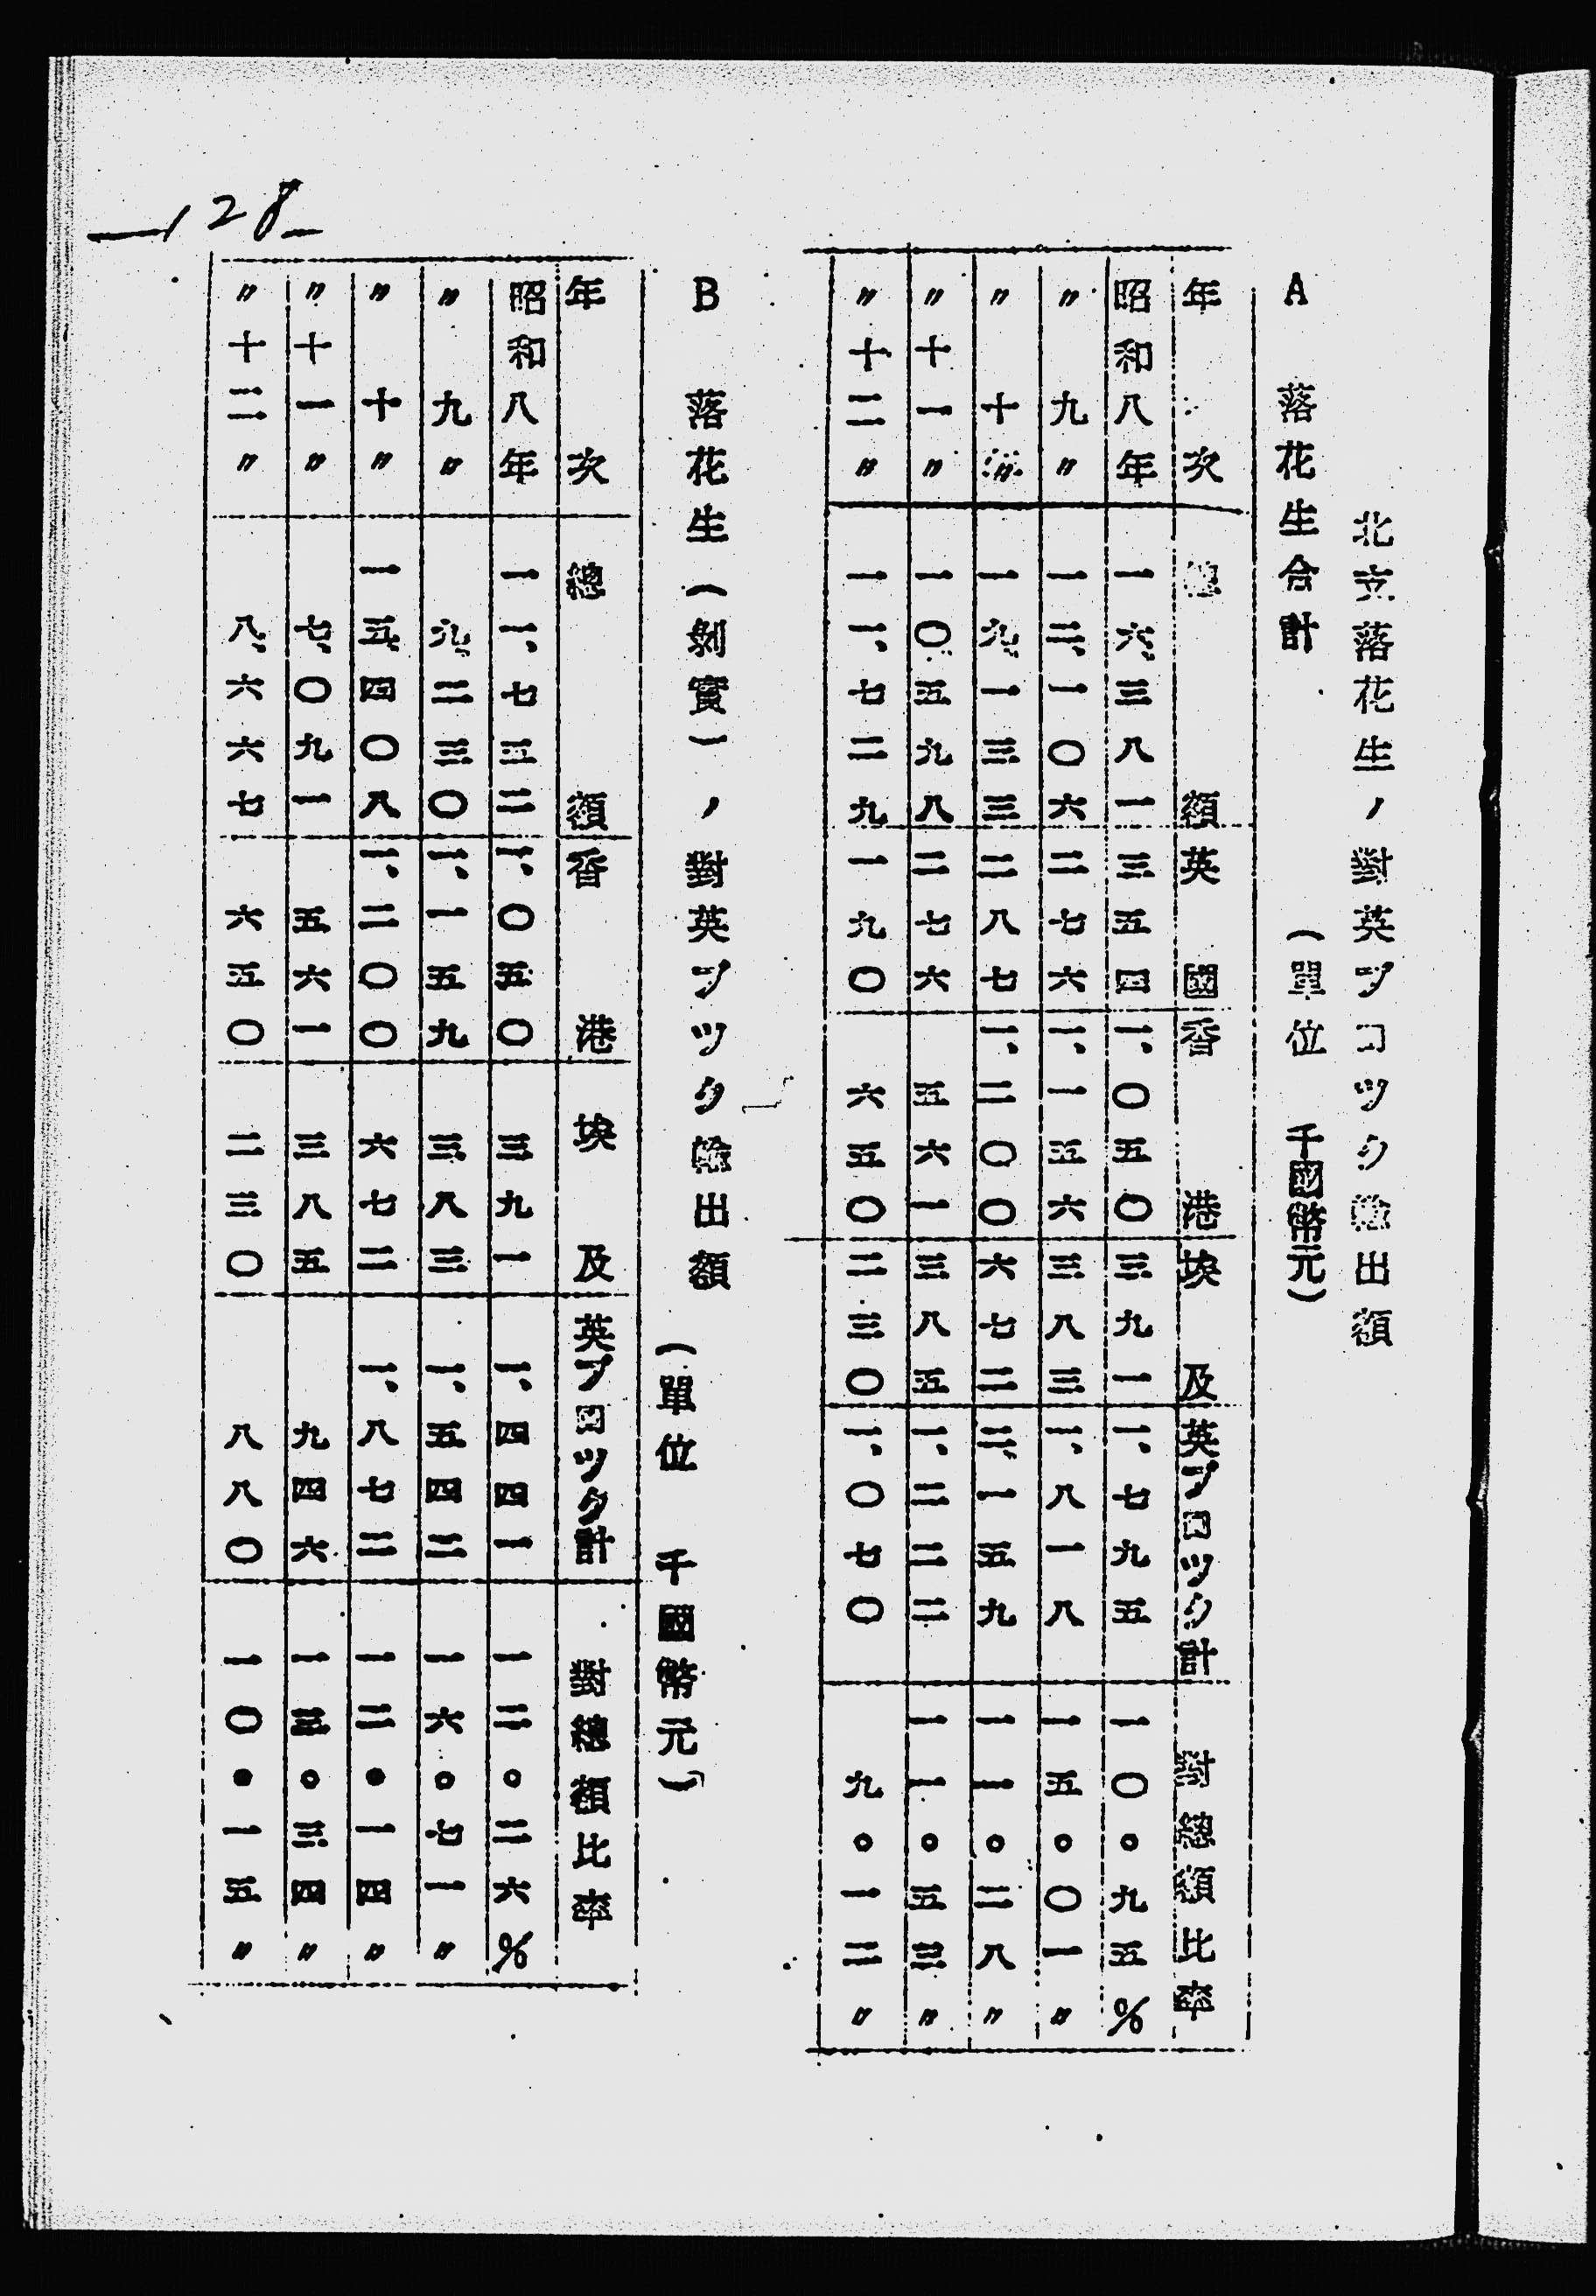 北支落花生ノ對英ブロツク輸出額
A 落花生合計 (單位 千國幣元)
年次 總額 英國 香港 埃及 英ブロツク計 對總額比率
昭和八年 一六、三八一 三五四 一、〇五〇 三九一 一、七九五 一〇。九五%
〃九〃 一二、一〇六 二七六 一、一五六 三八三 一、八一八 一五。〇一〃
〃十〃 一九、一三三 二八七 一、二〇〇 六七二 二、一五九 一一。二八〃
〃十一〃 一〇、五九八 二七六 五六一 三八五 一、二二二 一一。五三〃
〃十二〃 一一、七二九 一九〇 六五〇 二三〇 一、〇七〇 九。一二〃
B 落花生(剝實)ノ對英ブツク輸出額 (單位 千國幣元)
年次 總額 香港 埃及 英ブロツク計 對總額比率
昭和八年 一一、七五二 一、〇五〇 三九一 一、四四一 一二。二六%
〃九〃 九、二三〇 一、一五九 三八三 一、五四二 一六。七一〃
〃十〃 一五、四〇八 一、二〇〇 六七二 一、八七二 一二。一四〃
〃十一〃 七、〇九一 五六一 三八五 九四六 一三。三四〃
〃十二〃 八、六六七 六五〇 二三〇 八八〇 一〇。一五〃
—128—